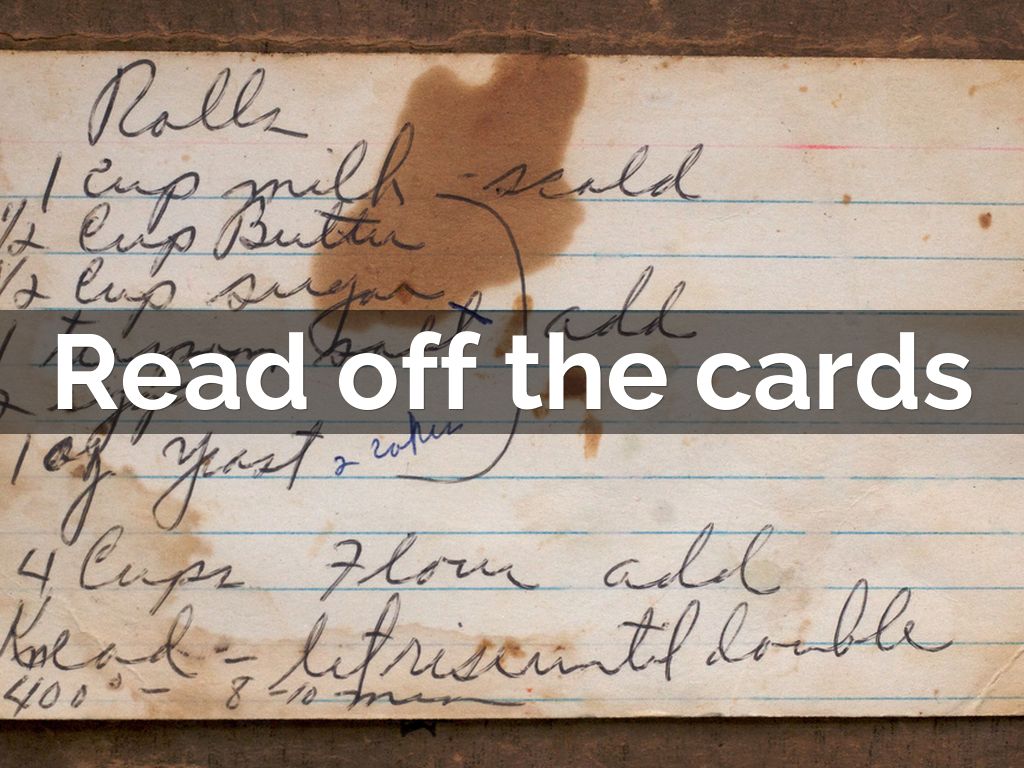 Rolls
1 cup milk - scald
1/2 Cup Butter
1/2 Cup sugar
add
1 teaspoon salt
Read off the cards
2 eggs
1 og yeast 2 cakes
4 Cups Flour add
Knead - let rise until double
400° - 8-10 min